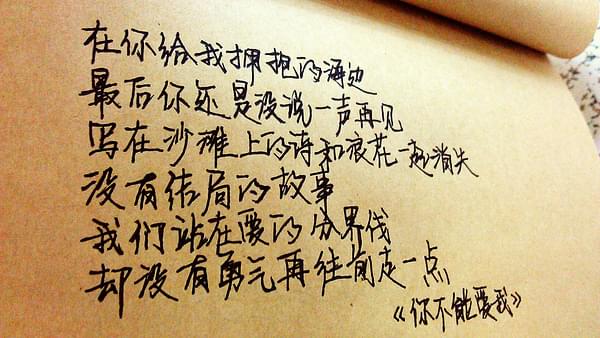 在你给我拥抱的海边
最后你还是没说一声再见
写在沙滩上的诗和浪花一起消失
没有结局的故事
我们站在爱的分界线
却没有勇气再往前走一点
《你不能爱我》